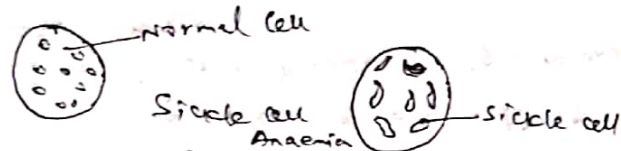 Normal Cell
Sickle cell
Anaemia
Sickle cell